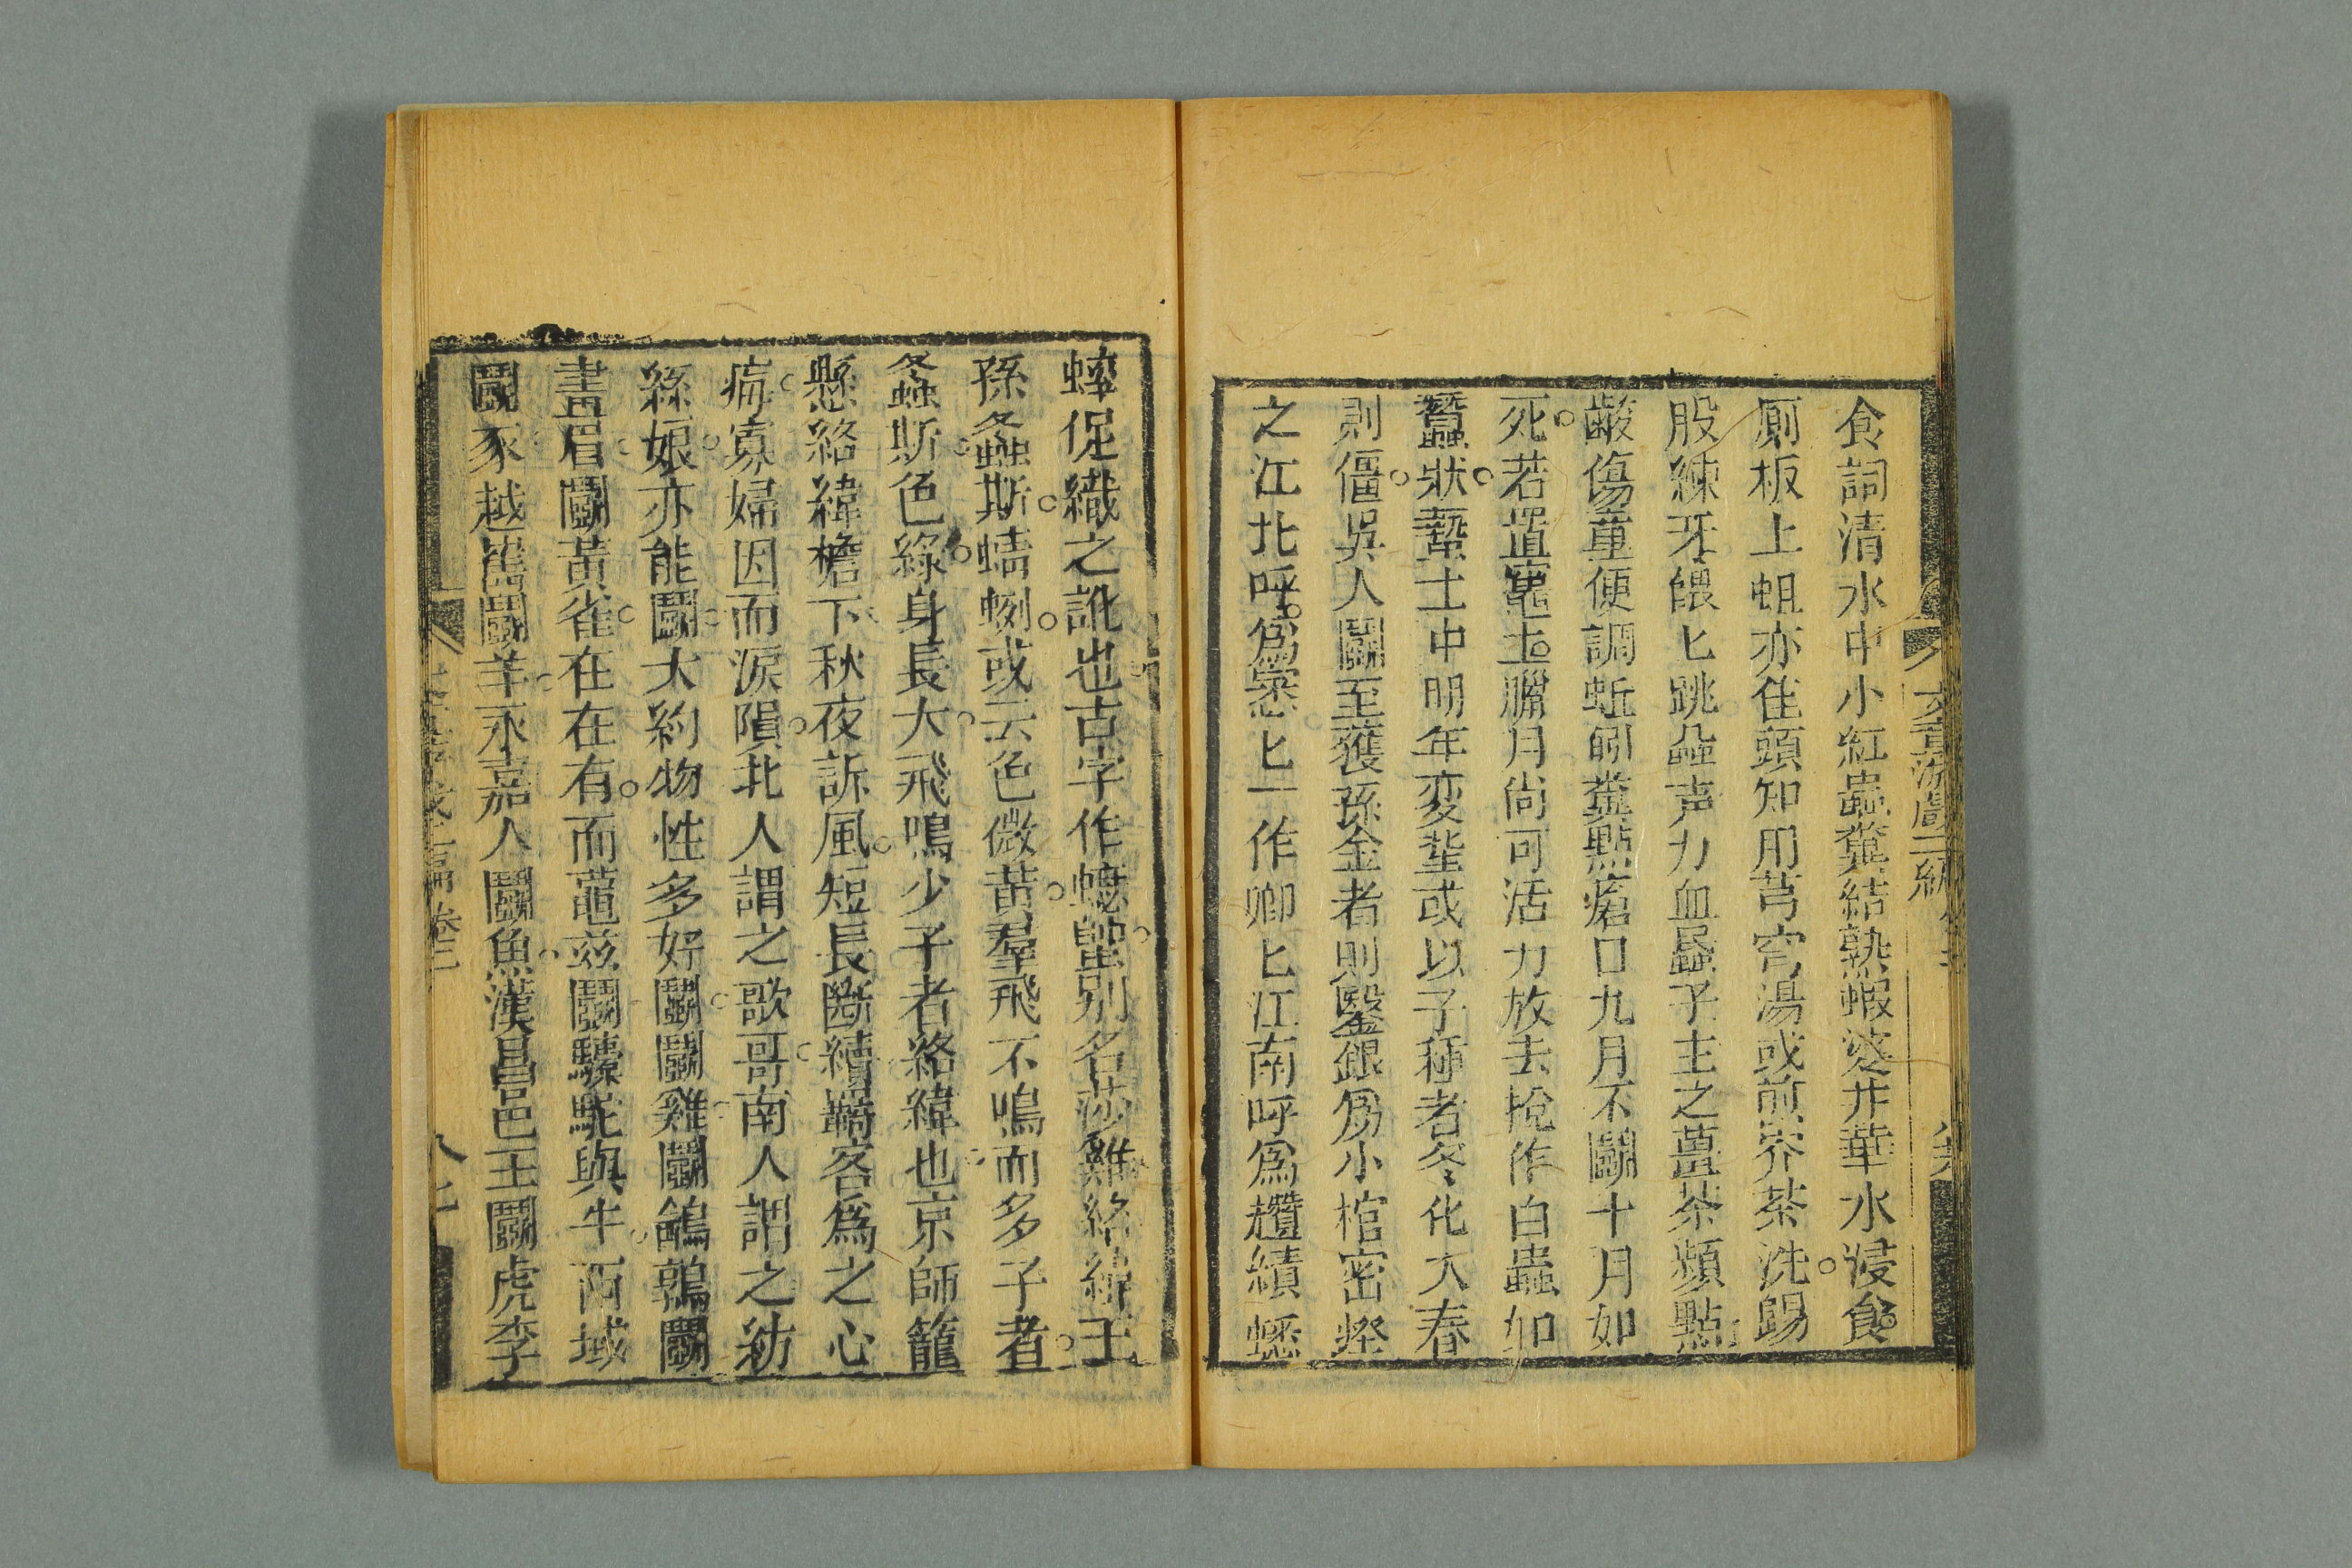 食詞清水中小紅蟲糞結熟蝦婆井華水浸食
厠板上蛆亦佳頭知用芎窮湯或煎茶洗賜
股練牙餵匕跳叠声力血蟲子主之薑茶頻點
齩傷重便調蚯蚓糞點瘡口九月不鬬十月如
死若置竈土臘月尚可活力放去拕作白蟲如
蠶狀蟄土中明年変蛩或以子種者冬化大春
則僵吳人鬬至獲孫金者則鑿銀為小棺密瘞
之江北呼為䍧匕一作卿匕江南呼為趲績蟋
蟀促織之訛也古字作蟋䘍別名莎雞絡緯王
孫螽斯蜻蛚或云色微黃羣飛不鳴而多子者
螽斯色綠身長大飛鳴少子者絡緯也京師籠
懸絡緯檐下秋夜訴風短長斷續羇客為之心
痗寡婦因而淚隕北人謂之歌哥南人謂之紡
絲娘亦能鬬大約物性多好鬬鬬雞鬬鵮鶉鬬
畫眉鬬黃雀在在有而龜茲鬬騾駝與牛西域
鬬豖越嶲鬬羊永嘉人鬬魚漢昌邑王鬬虎李
卷三